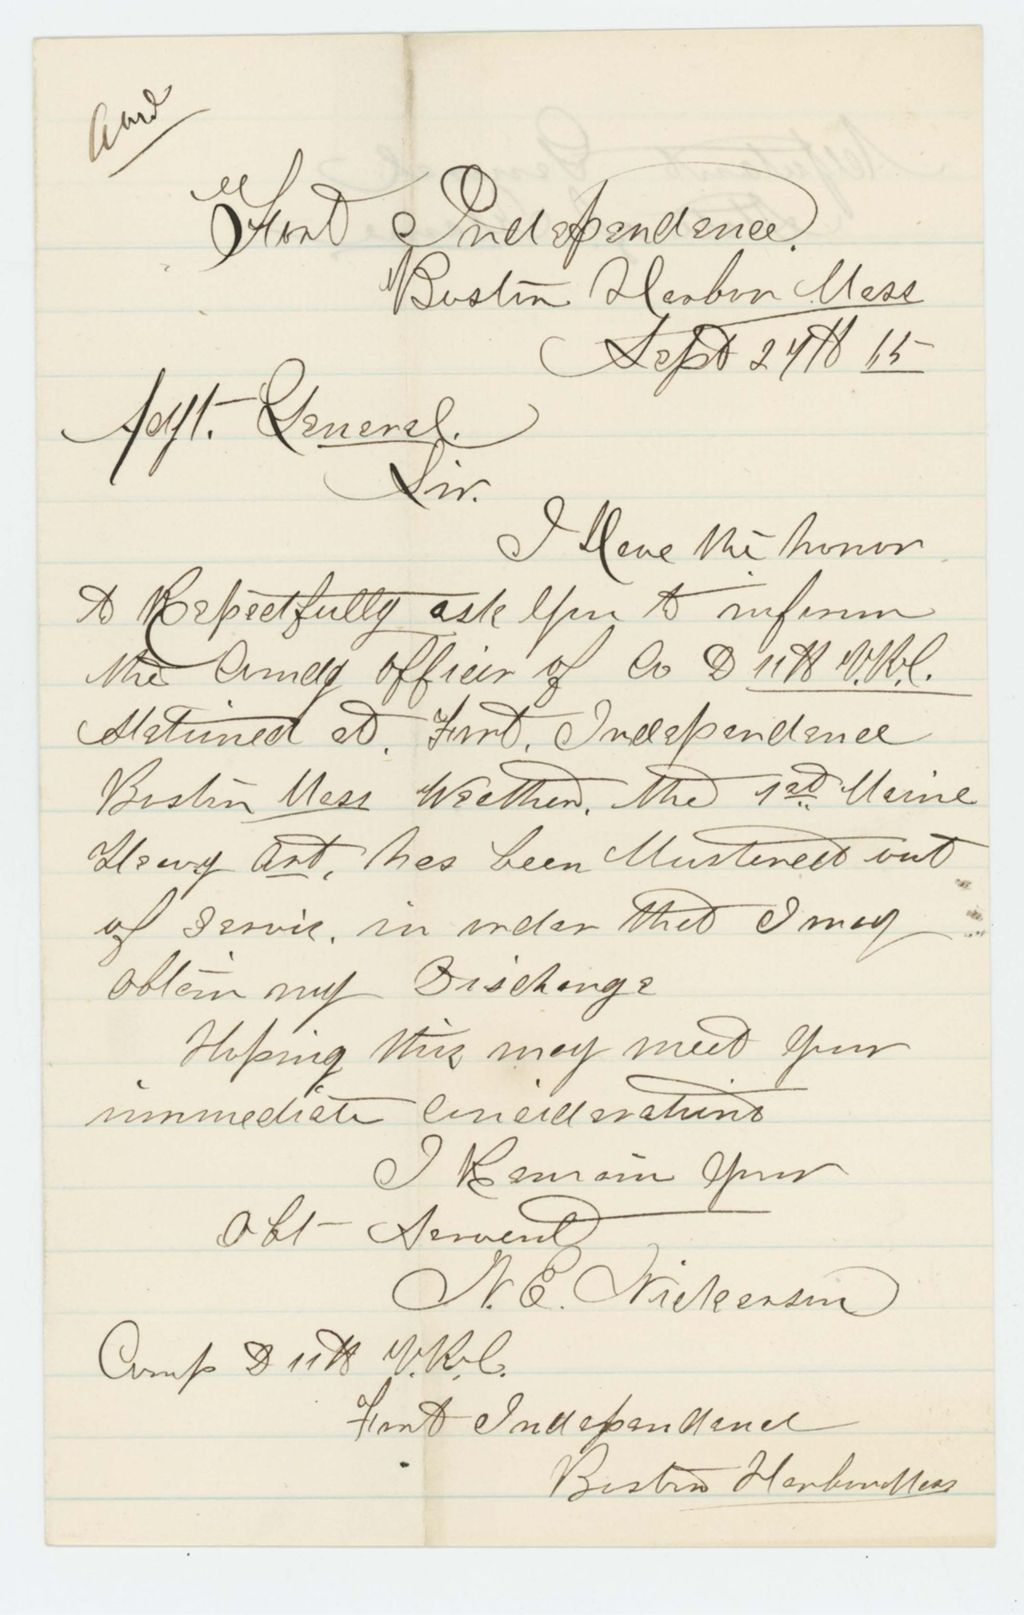 Ansd
Fort Independence.
Boston Harbor Mass
Sept 27th 65
Adjt. General.
Sir.
I Have the honor
to Respectfully ask you to inform
the Comdg officer of Co D 11th V.R.C.
Stationed at. Fort. Independence
Boston Mass Weather. the 1st Maine
Heavy Art. has been Mustered out
of servic. in order that I may
obtain my Discharge
Hoping this may meet your
immediate Considerations
I Remain your
Obt Servent
N. E. Nickerson
Comp D 11th V.R.C.
Fort Independence
Boston Harbor Mass